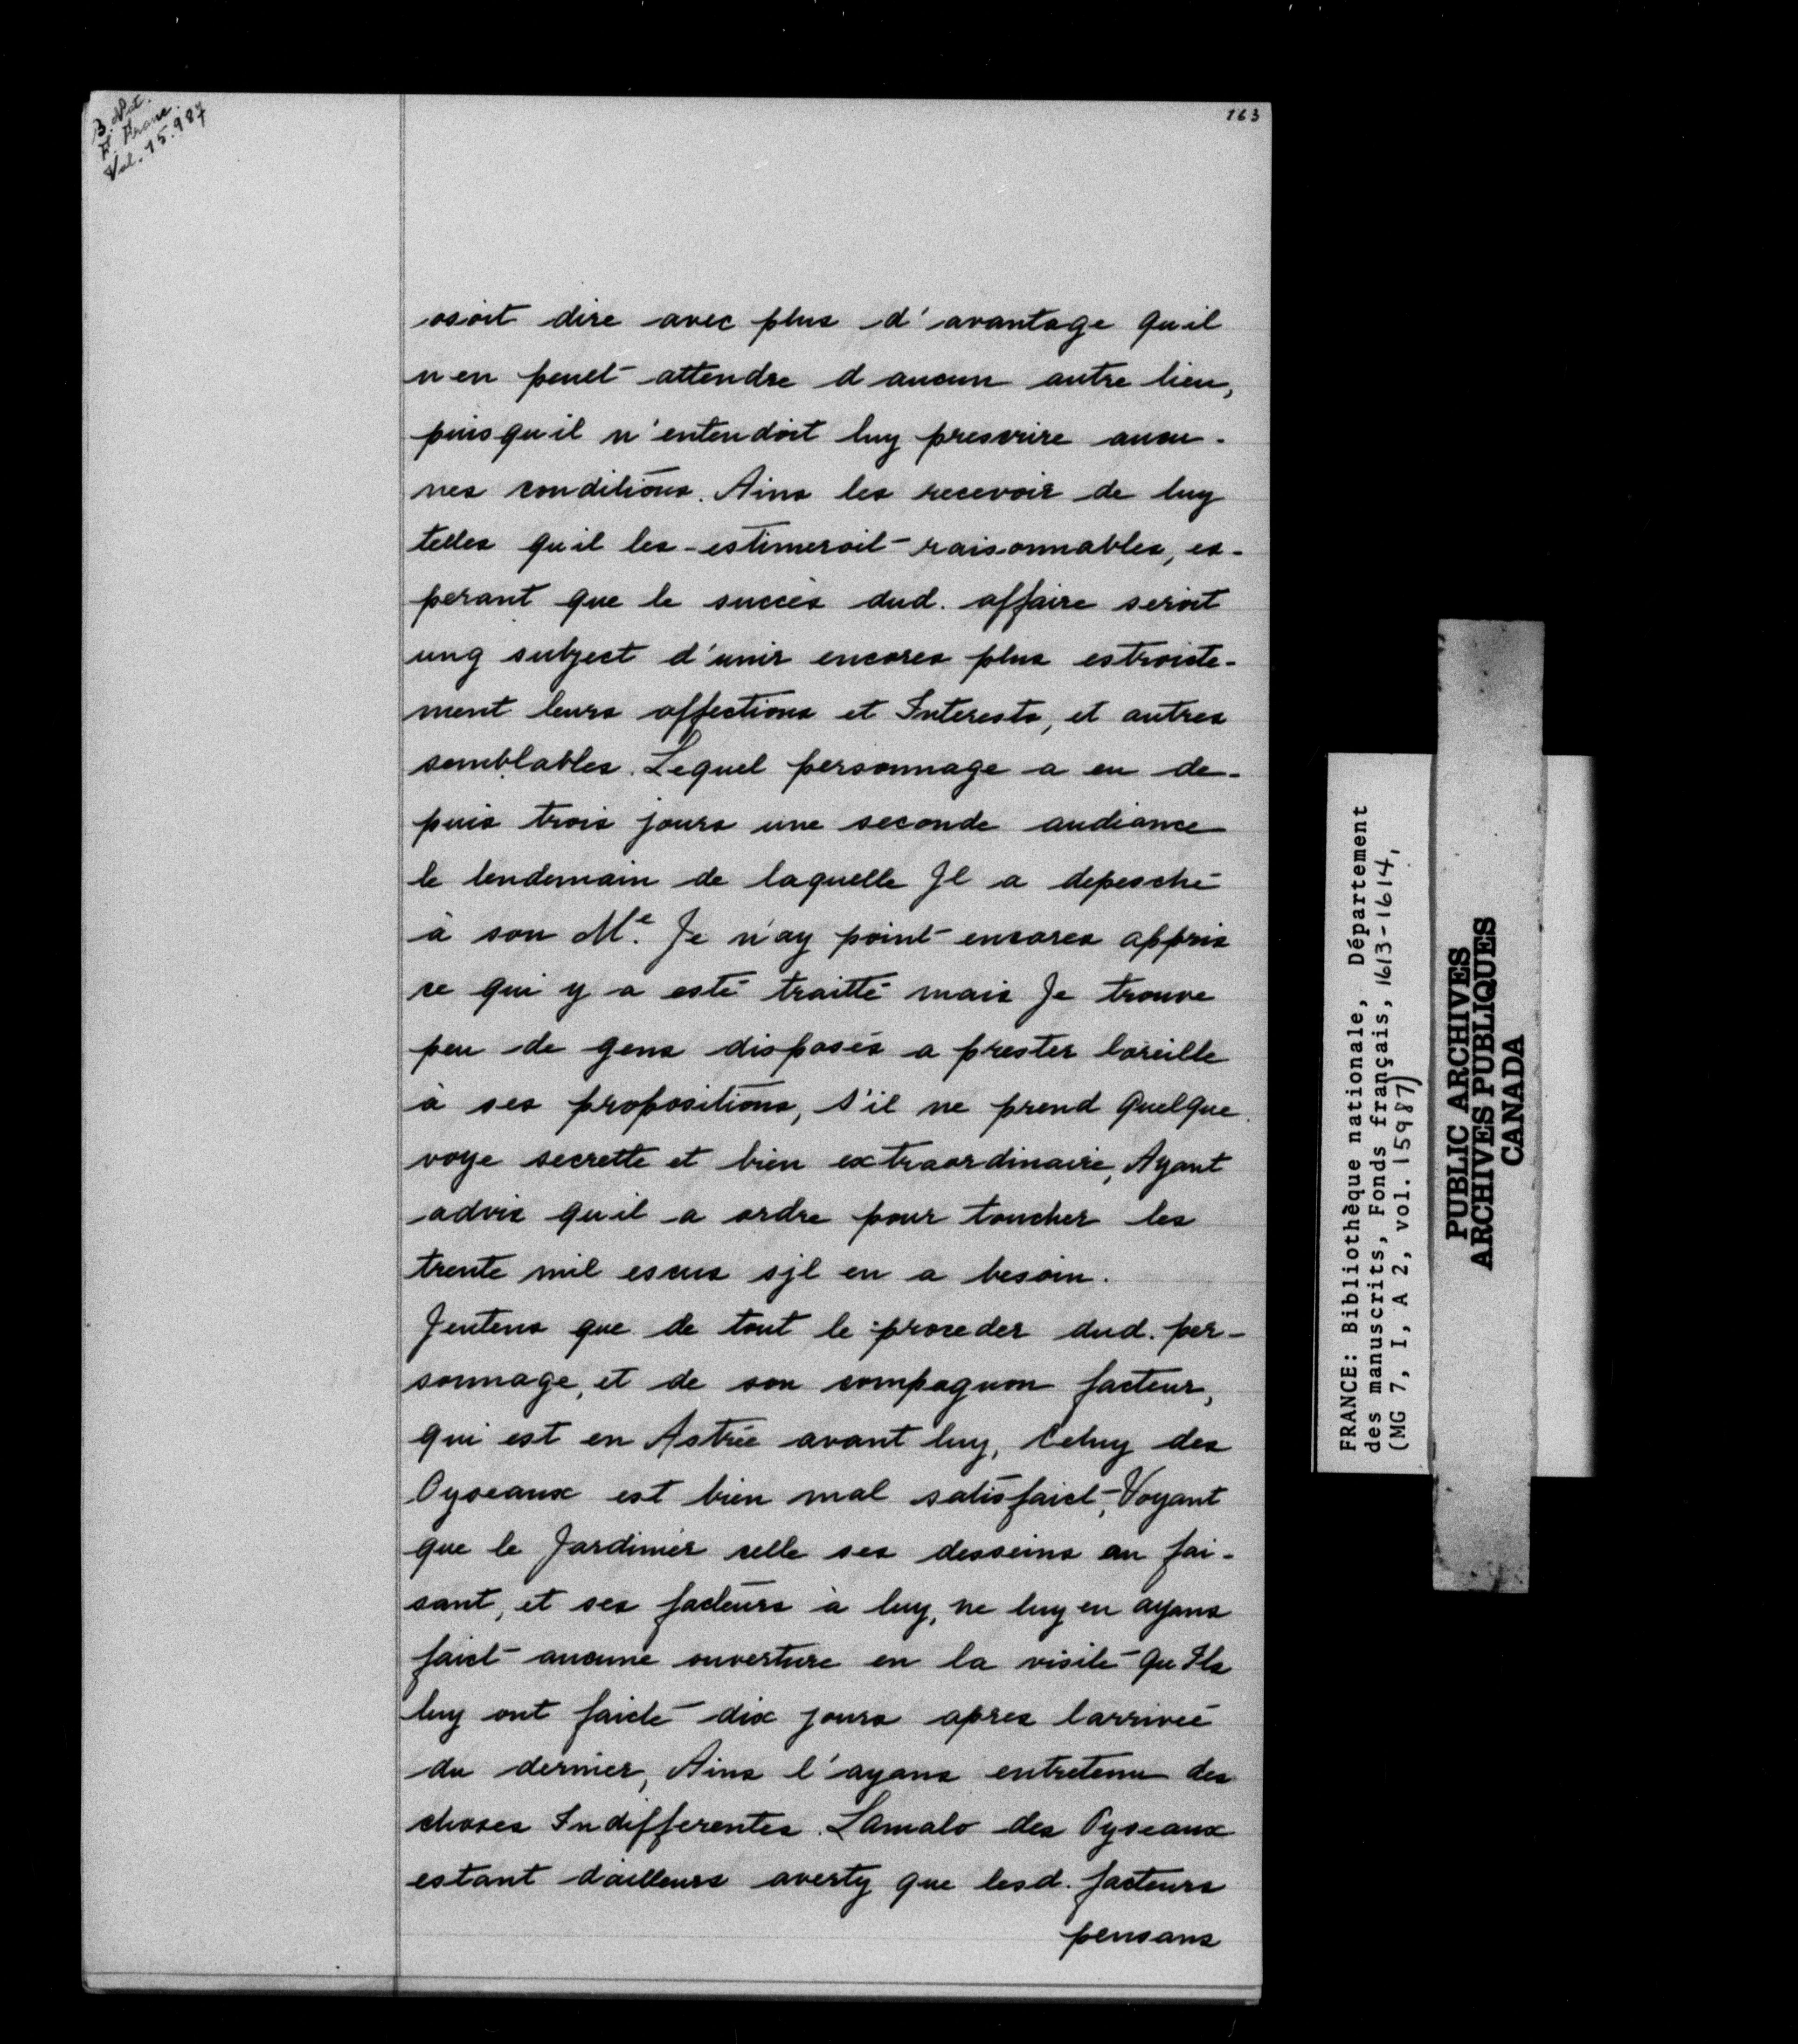 B. Nat.
F. Franc.
Vol. 15.987
163
osoit dire avec plus d'avantage quil
n en peult attendre d aucun autre lieu,
puisqu il n'entendoit luy prescrire aucu-
nes conditions. Ains les recevoir de luy
telles qu il les estimeroit raisonnables, es-
perant que le succès dud. affaire seroit
ung subject d'unir encores plus estroicte-
ment leurs affections et Interests, et autres
semblables. Lequel personnage a eu de-
puis trois jours une seconde audiance
le lendemain de laquelle Jl a depesché
à son Me. Je n'ay point encores appris
ce qui y a esté traitté mais Je trouve
peu de gens disposés a prester loreille
à ses propositions, s'il ne prend quelque
voye secrette et bien extraordinaire, Ayant
advis qu il a ordre pour toucher les
trente mil escus sjl en a besoin.
Jentens que de tout le proceder dud. per-
sonnage, et de son compagnon facteur,
qui est en Astrée avant luy, Celuy des
Oyseaux est bien mal satisfaict, Voyant
que le Jardinier celle ses desseins au fai-
sant, et ses facteurs à luy, ne luy en ayans
faict aucune ouverture en la visite qu Ils
luy ont faicte dix jours apres larrivée
du dernier, Ains l'ayans entretenu des
choses Indifferentes. Lamalo des Oyseaux
estant dailleurs averty que lesd. facteurs
pensans
FRANCE: Bibliothèque nationale, Département
des manuscrits, Fonds français, 1613-1614,
(MG 7, I, A 2, vol. 15987)
PUBLIC ARCHIVES
ARCHIVES PUBLIQUES
CANADA